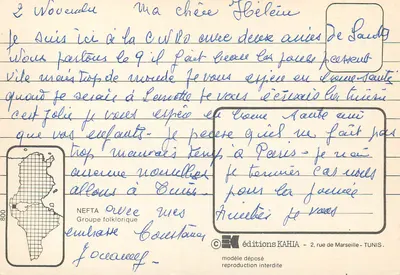 2 Novembre ma chère Hélène
Je suis ici à la avec deux amies de
Nous partons le 9 il fait beau les jours passent
vite mais trop de monde Je vous espère en bonne santé
quand je serais à Je vous écrirais la Tunisie
c'est jolie Je vous espère en bonne santé ainsi
que vos enfants - Je pense qu'il ne fait pas
trop mauvais temps à Paris - Je n'ai
aucune nouvelles Je
allons à Tunis - pour la journée
NEFTA avec mes Amitiés Je vous
Groupe folklorique
embrasse
800
© éditions KAHIA - 2, rue de Marseille - TUNIS.
modèle déposé
reproduction interdite